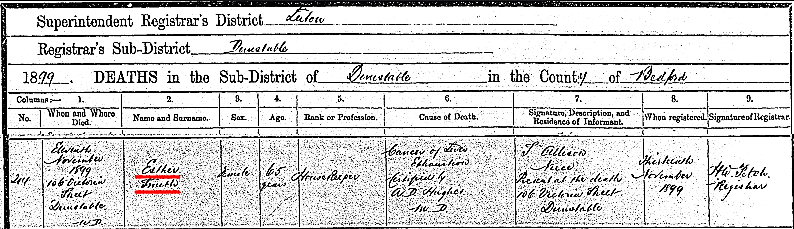 Superintendent Registrar's District Luton
Registrar's Sub-District Dunstable
1899. DEATHS in the Sub-District of Dunstable in the County of Bedford
Columns:— 1. 2. 3. 4. 5. 6. 7. 8. 9.
No. When and Where Died. Name and Surname. Sex. Age. Rank or Profession. Cause of Death. Signature, Description, and Residence of Informant. When registered. Signature of Registrar.
Eleventh
November
1899
106 Victoria
Street
Dunstable
Esther
Smith
65
years
Housekeeper
Cancer of Liver
Exhaustion
Certified by
Hughes
M.D.
Allison
Niece
Present at the death
106 Victoria Street
Dunstable
Thirteenth
November
1899
Registrar